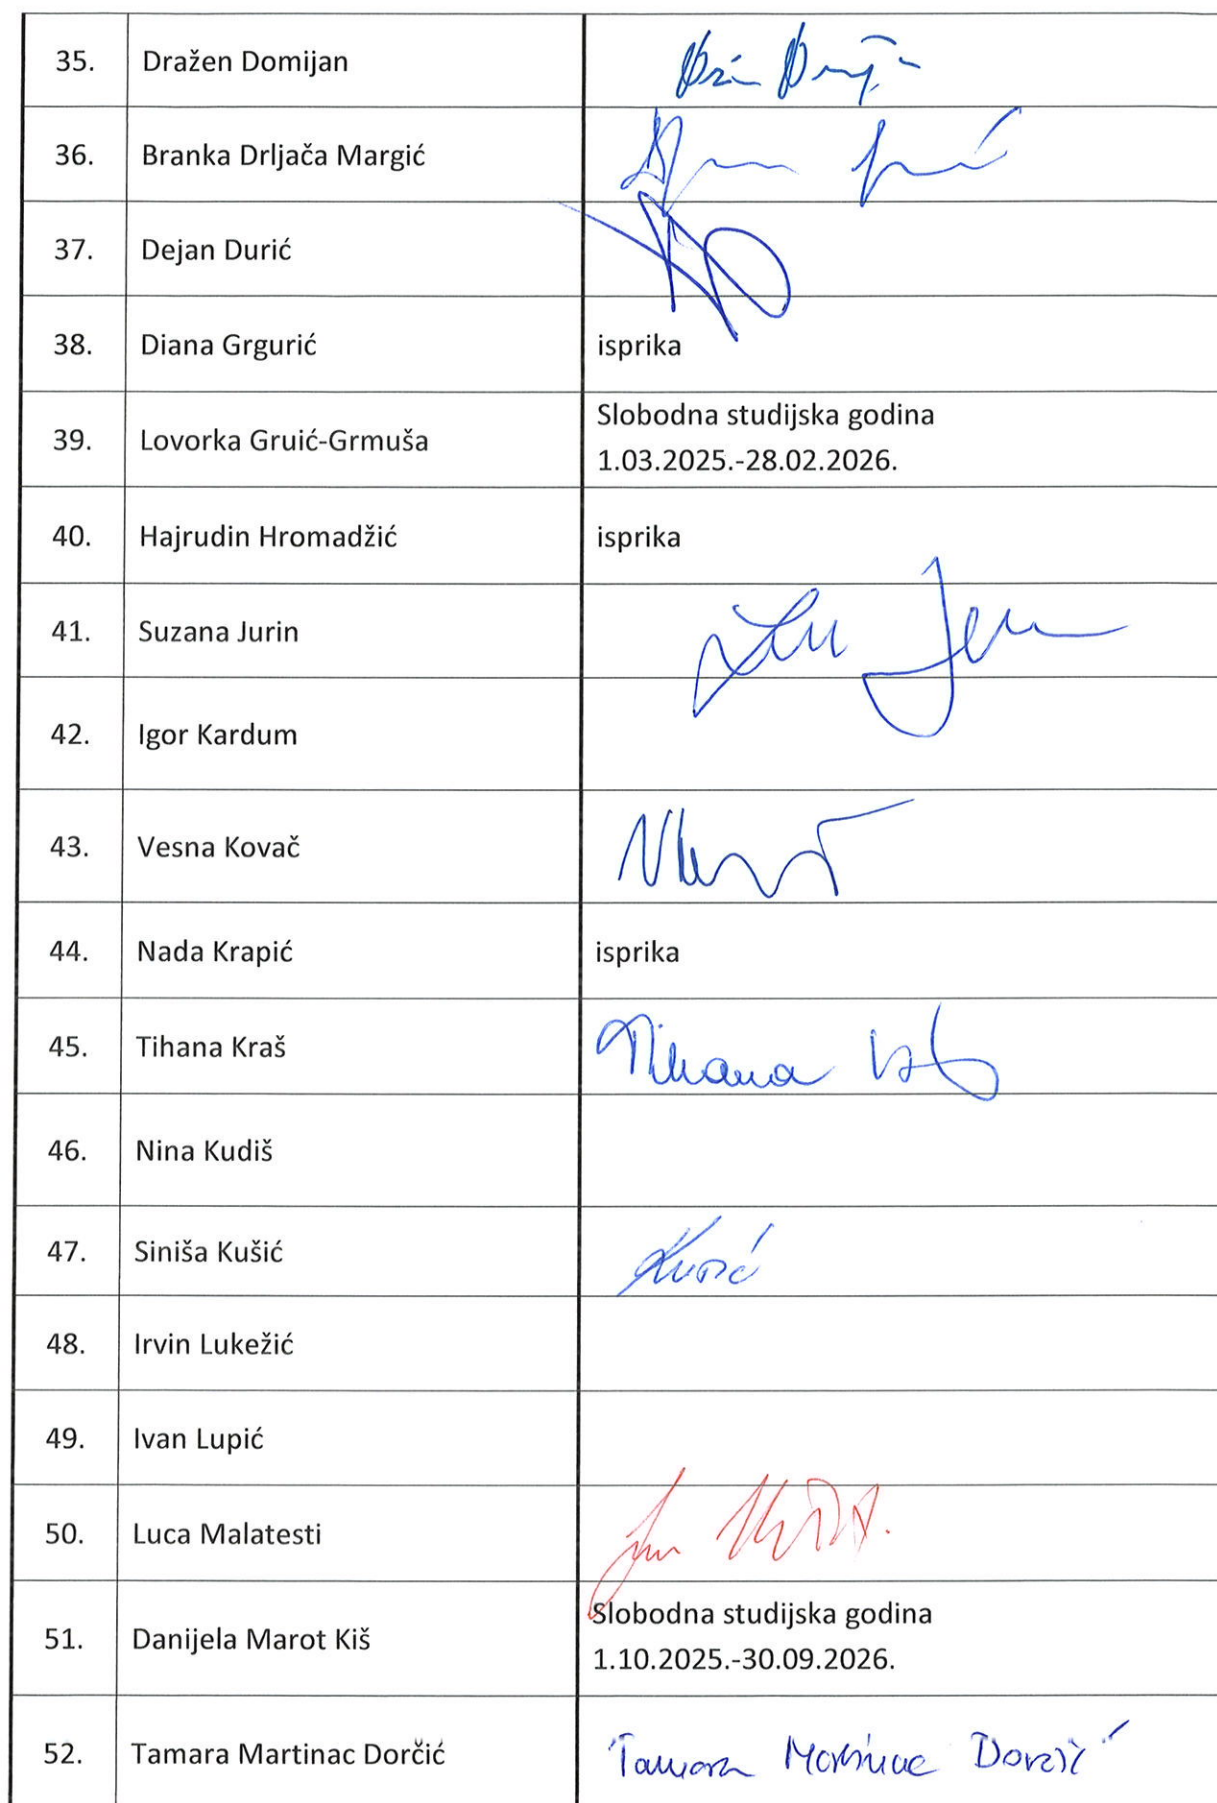 35. Dražen Domijan
36. Branka Drljača Margić
37. Dejan Durić
38. Diana Grgurić isprika
39. Lovorka Gruić-Grmuša Slobodna studijska godina
1.03.2025.-28.02.2026.
40. Hajrudin Hromadžić isprika
41. Suzana Jurin
42. Igor Kardum
43. Vesna Kovač
44. Nada Krapić isprika
45. Tihana Kraš Tihana
46. Nina Kudiš
47. Siniša Kušić Kušić
48. Irvin Lukežić
49. Ivan Lupić
50. Luca Malatesti
51. Danijela Marot Kiš Slobodna studijska godina
1.10.2025.-30.09.2026.
52. Tamara Martinac Dorčić Tamara Martinac Dorčić